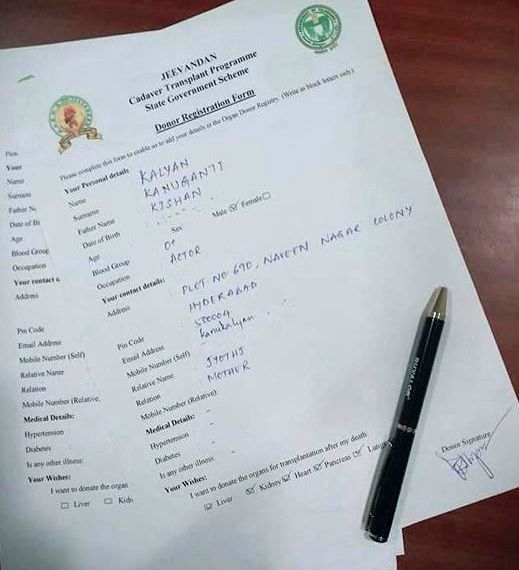 JEEVANDAN
Cadaver Transplant Programme
State Government Scheme
Donor Registration Form
Please complete this form to enable us to add your details in the Organ Donor Registry. (Write in block letters only)
Your Personal details
Name KALYAN
Surname KANUGANTI
Father Name KISHAN
Date of Birth
Age Sex Male Female
Blood Group O+
Occupation ACTOR
Your contact details:
Address PLOT NO 690, NAVEEN NAGAR COLONY
HYDERABAD
Pin Code 500004
Email Address kanukalyan
Mobile Number (Self)
Relative Name JYOTHI
Relation MOTHER
Mobile Number (Relative)
Medical Details:
Hypertension
Diabetes
Is any other illness:
Your Wishes:
I want to donate the organs for transplantation after my death:
Liver Kidney Heart Pancreas Lungs
Donor Signature
Your
Name
Surname
Father N
Date of Bi
Age
Blood Group
Occupation
Your contact
Address
Pin Code
Email Address
Mobile Number (Self)
Relative Name
Relation
Mobile Number (Relative
Medical Details:
Hypertension
Diabetes
Is any other illness:
Your Wishes:
I want to donate the organ
Liver Kidn